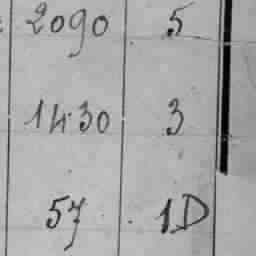 2090 5
1430 3
57 1D